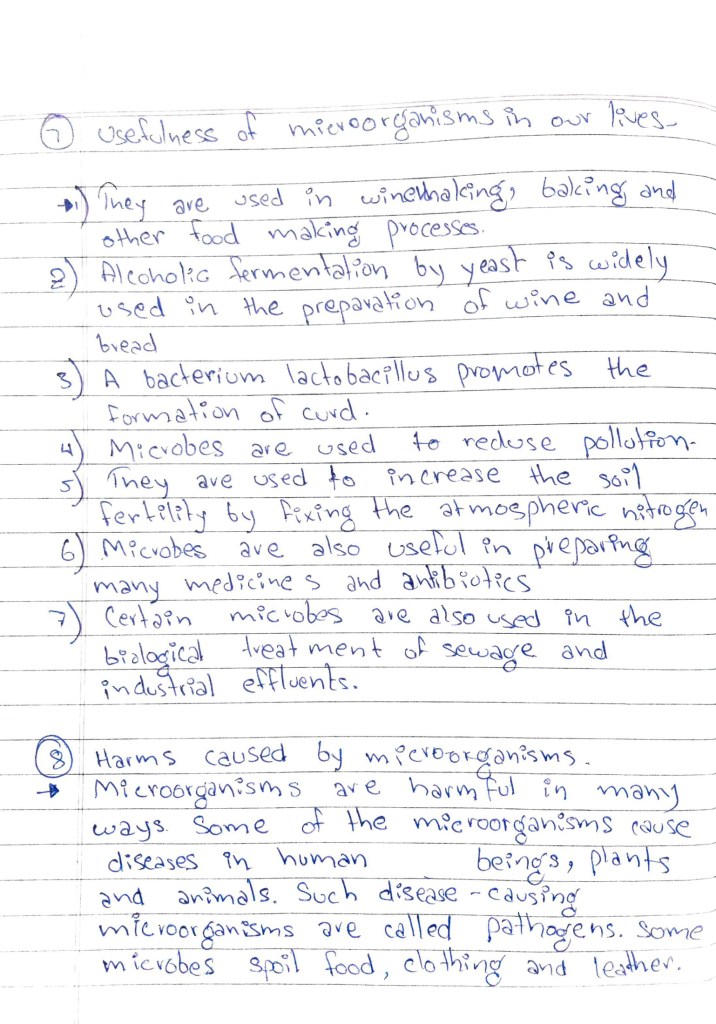 7 Usefulness of microorganisms in our lives
→1) They are used in winemaking, baking and
other food making processes.
2) Alcoholic fermentation by yeast is widely
used in the preparation of wine and
bread
3) A bacterium lactobacillus promotes the
formation of curd.
4) Microbes are used to reduse pollution.
5) They are used to increase the soil
fertility by fixing the atmospheric nitrogen
6) Microbes are also useful in preparing
many medicines and antibiotics
7) Certain microbes are also used in the
biological treatment of sewage and
industrial effluents.
8 Harms caused by microorganisms.
→ Microorganisms are harmful in many
ways. Some of the microorganisms cause
diseases in human beings, plants
and animals. Such disease-causing
microorganisms are called pathogens. Some
microbes spoil food, clothing and leather.